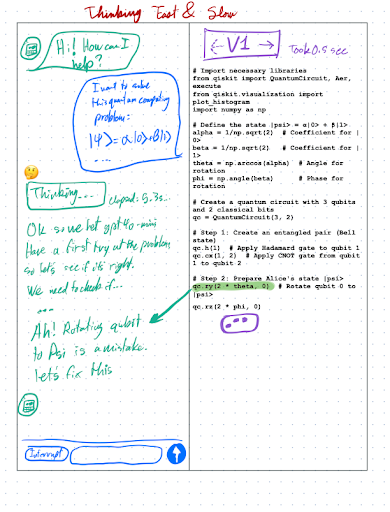 Thinking Fast & Slow
Hi! How can I
help?
I want to solve
this quantum computing
problem:
|Ψ⟩ = α|0⟩+β|1⟩
....
Thinking...
elapsed: 5.3s...
Ok so we let gpt4o-mini
Have a first try at the problem,
so let's see if it's right.
We need to check if...
...
Ah! Rotating qubit
to Psi is a mistake.
let's fix this
Interrupt
← V1 →
Took 0.5 sec
# Import necessary libraries
from qiskit import QuantumCircuit, Aer,
execute
from qiskit.visualization import
plot_histogram
import numpy as np
# Define the state |psi> = α|0> + β|1>
alpha = 1/np.sqrt(2)  # Coefficient for |
0>
beta = 1/np.sqrt(2)  # Coefficient for |
1>
theta = np.arccos(alpha)  # Angle for
rotation
phi = np.angle(beta)  # Phase for
rotation
# Create a quantum circuit with 3 qubits
and 2 classical bits
qc = QuantumCircuit(3, 2)
# Step 1: Create an entangled pair (Bell
state)
qc.h(1)  # Apply Hadamard gate to qubit 1
qc.cx(1, 2)  # Apply CNOT gate from qubit
1 to qubit 2
# Step 2: Prepare Alice's state |psi>
qc.ry(2 * theta, 0)  # Rotate qubit 0 to
|psi>
qc.rz(2 * phi, 0)
...